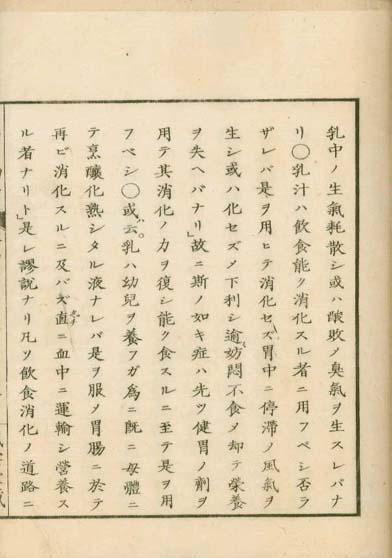 乳中ノ生氣耗散シ或ハ酸敗ノ臭氣ヲ生スレバナ
リ〇乳汁ハ飲食能ク消化スル者ニ用フベシ否ラ
ザレバ是ヲ用ヒテ消化セズ胃中ニ停滞ノ風氣ヲ
生シ或ハ化セズメ下利シ逾妨悶不食メ却テ榮養
ヲ失ヘバナリ」故ニ斯ノ如キ症ハ先ツ健胃ノ劑ヲ
用テ其消化ノ力ヲ復シ能ク食スルニ至テ是ヲ用
フベシ〇或ハ云。乳ハ幼兒ヲ養フガ爲ニ既ニ母體ニ
テ烹釀化熟シタル液ナレバ是ヲ服メ胃腸ニ於テ
再ビ消化スルニ及バズ直ニ血中ニ運輸シ營養ス
ル者ナリト」是レ謬説ナリ凡ソ飲食消化ノ道路ニ